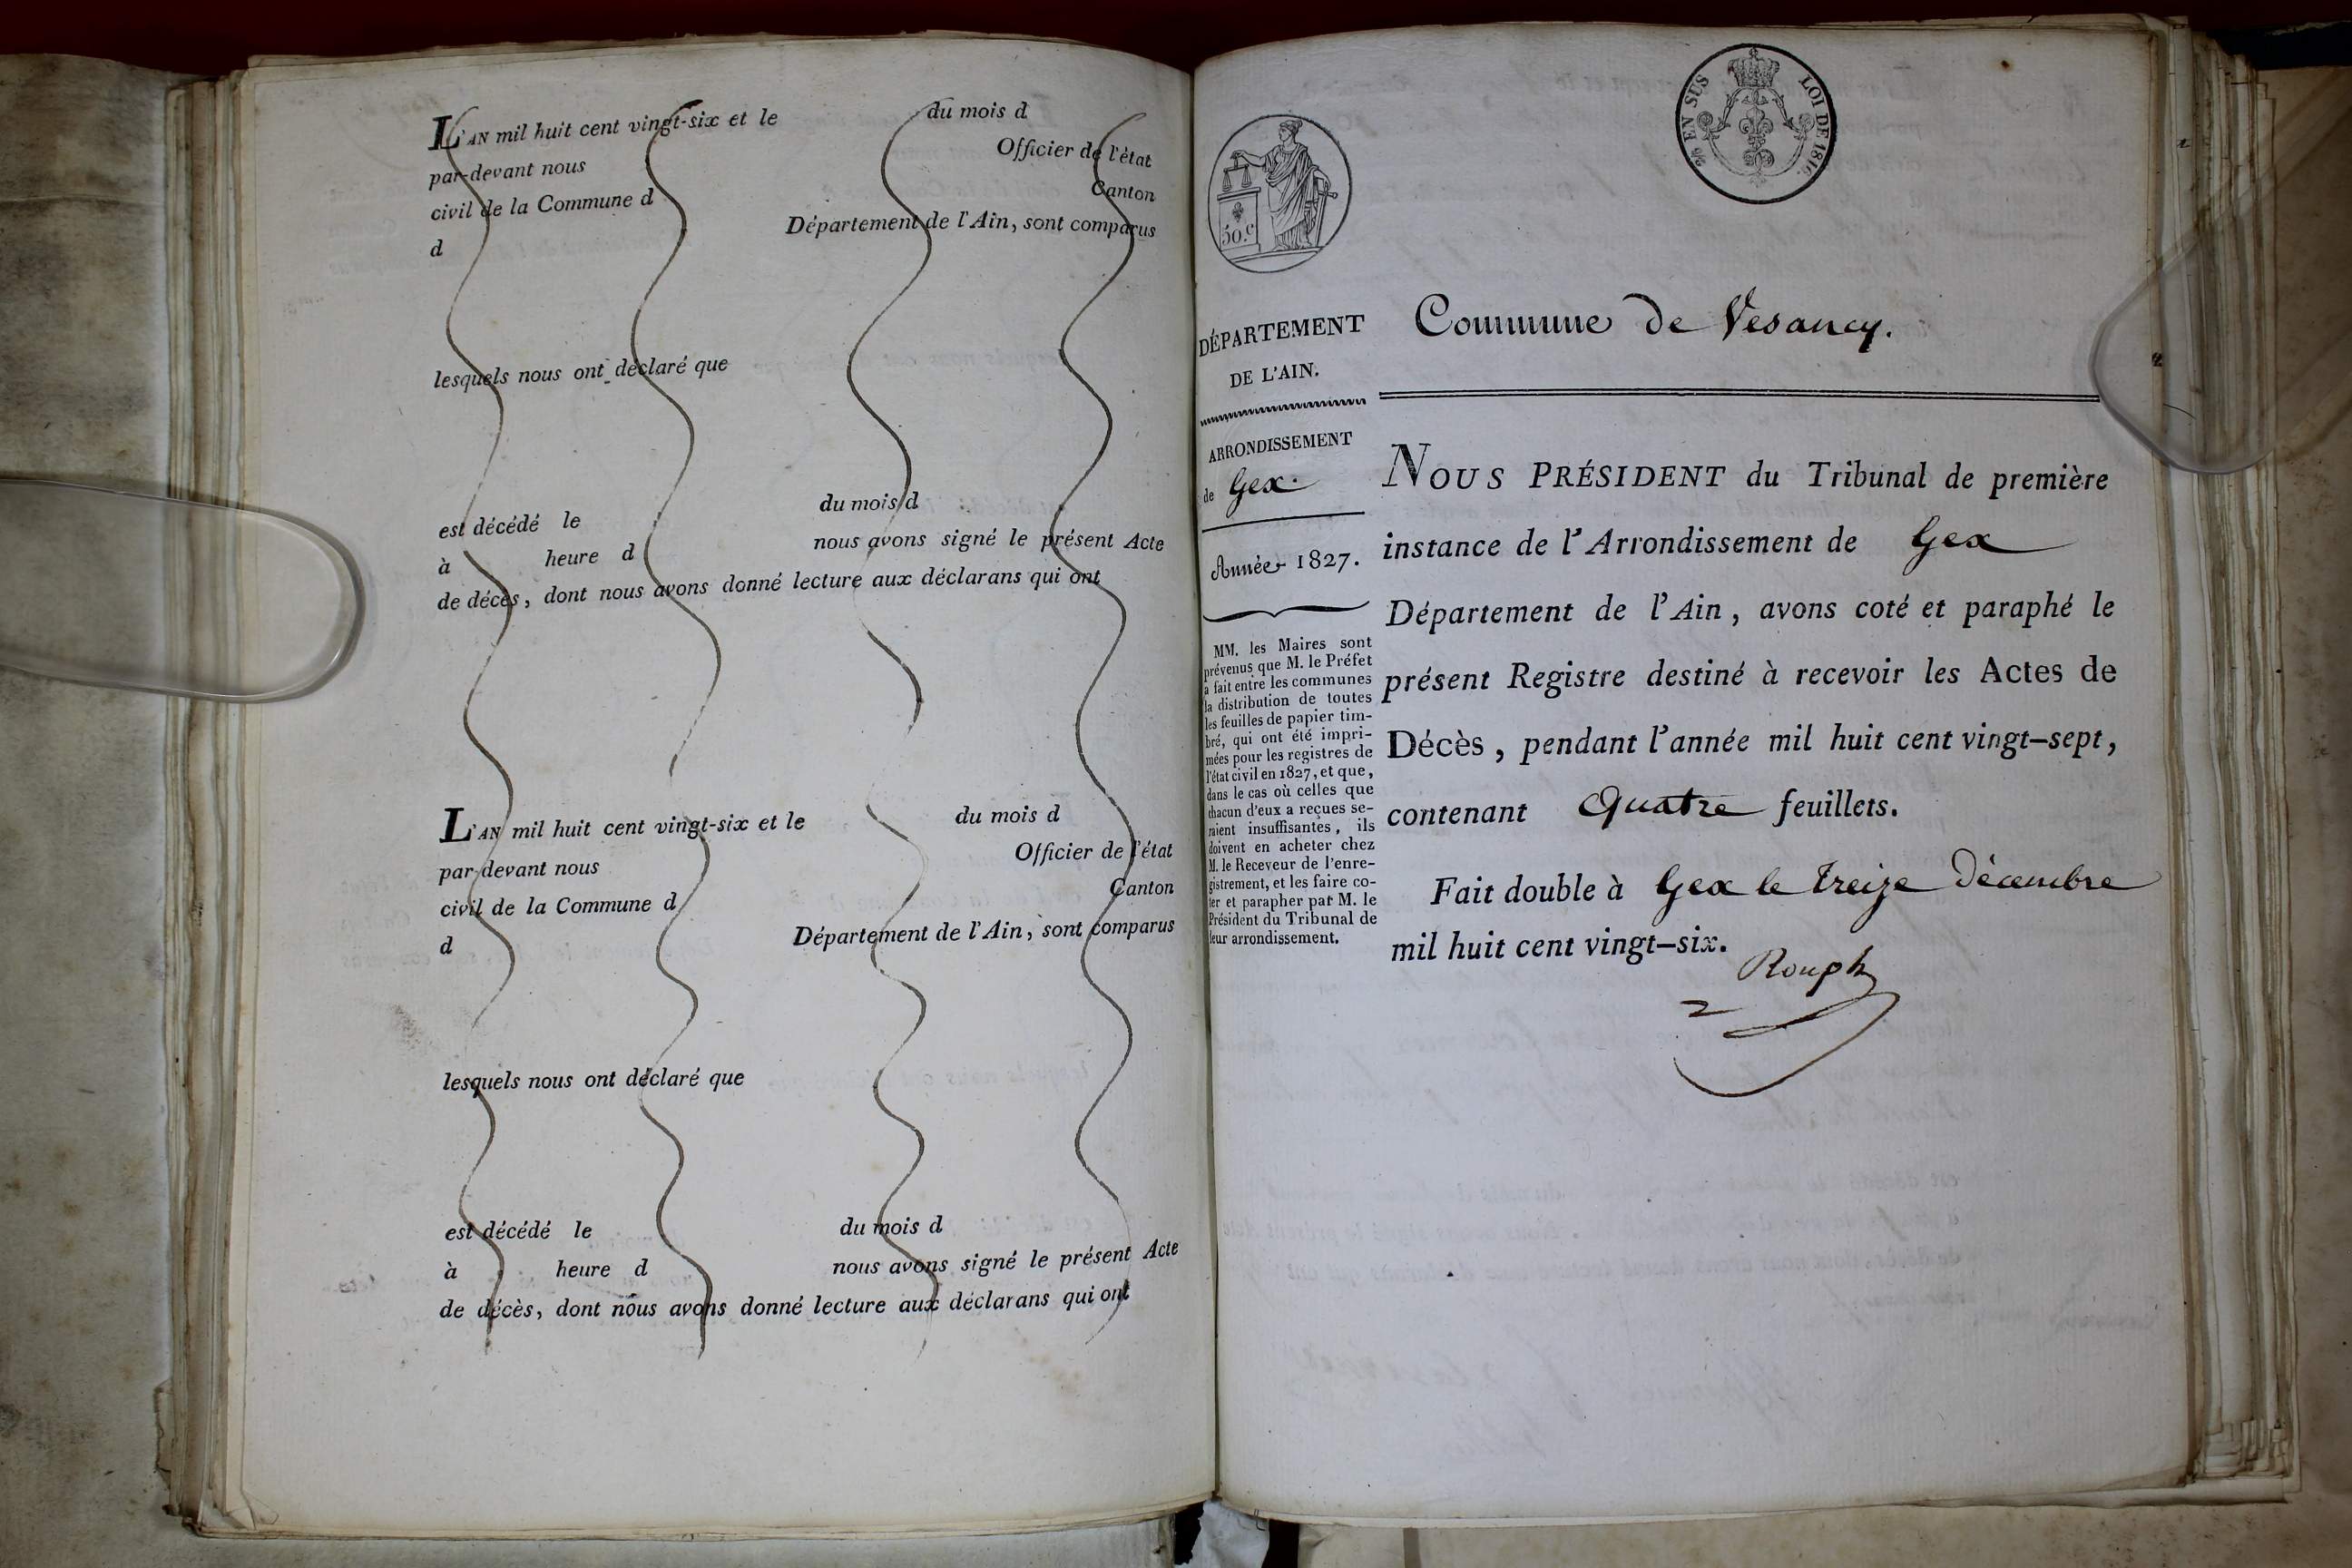 L'AN mil huit cent vingt-six et le du mois d
par-devant nous Officier de l'état
civil de la Commune d Canton
d Département de l'Ain, sont comparus
lesquels nous ont déclaré que
est décédé le du mois d
à heure d nous avons signé le présent Acte
de décès, dont nous avons donné lecture aux déclarans qui ont
L'AN mil huit cent vingt-six et le du mois d
par-devant nous Officier de l'état
civil de la Commune d Canton
d Département de l'Ain, sont comparus
lesquels nous ont déclaré que
est décédé le du mois d
à heure d nous avons signé le présent Acte
de décès, dont nous avons donné lecture aux déclarans qui ont
EN SUS LOI DE 1816.
50.c
DÉPARTEMENT
DE L'AIN.
ARRONDISSEMENT
de Gex.
Année 1827.
MM. les Maires sont
prévenus que M. le Préfet
a fait entre les communes
la distribution de toutes
les feuilles de papier tim-
bré, qui ont été impri-
mées pour les registres de
l'état civil en 1827, et que,
dans le cas où celles que
chacun d'eux a reçues se-
raient insuffisantes, ils
doivent en acheter chez
M. le Receveur de l'enre-
gistrement, et les faire co-
ter et parapher par M. le
Président du Tribunal de
leur arrondissement.
Commune de Vesancy.
NOUS PRÉSIDENT du Tribunal de première
instance de l'Arrondissement de Gex
Département de l'Ain, avons coté et paraphé le
présent Registre destiné à recevoir les Actes de
Décès, pendant l'année mil huit cent vingt-sept,
contenant Quatre feuillets.
Fait double à Gex le treize Décembre
mil huit cent vingt-six.
Rouph